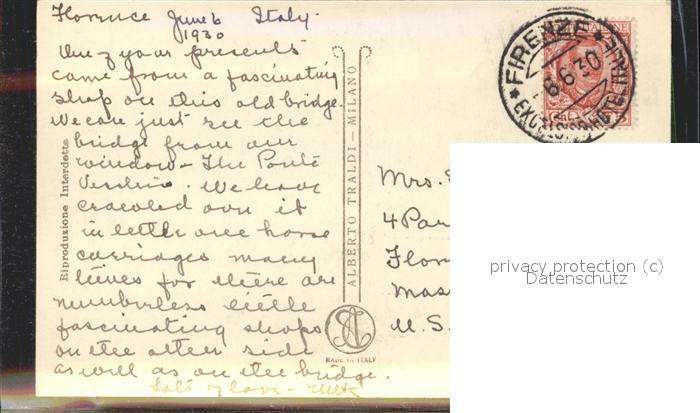 Florence June 6 Italy.
1930
One of your presents
came from a fascinating
shop on this old bridge.
We can just see the
bridge from our
window - The Ponte
Vecchio. We have
crawled over it
in little one horse
carriages many
times for there are
numberless little
fascinating shops
on the other side
as well as on the bridge.
Lots of love -
Riproduzione Interdetta
ALBERTO TRALDI - MILANO
MADE IN ITALY
FIRENZE
6.6.30
Mrs.
4
Mass
U.S.
privacy protection (c)
Datenschutz